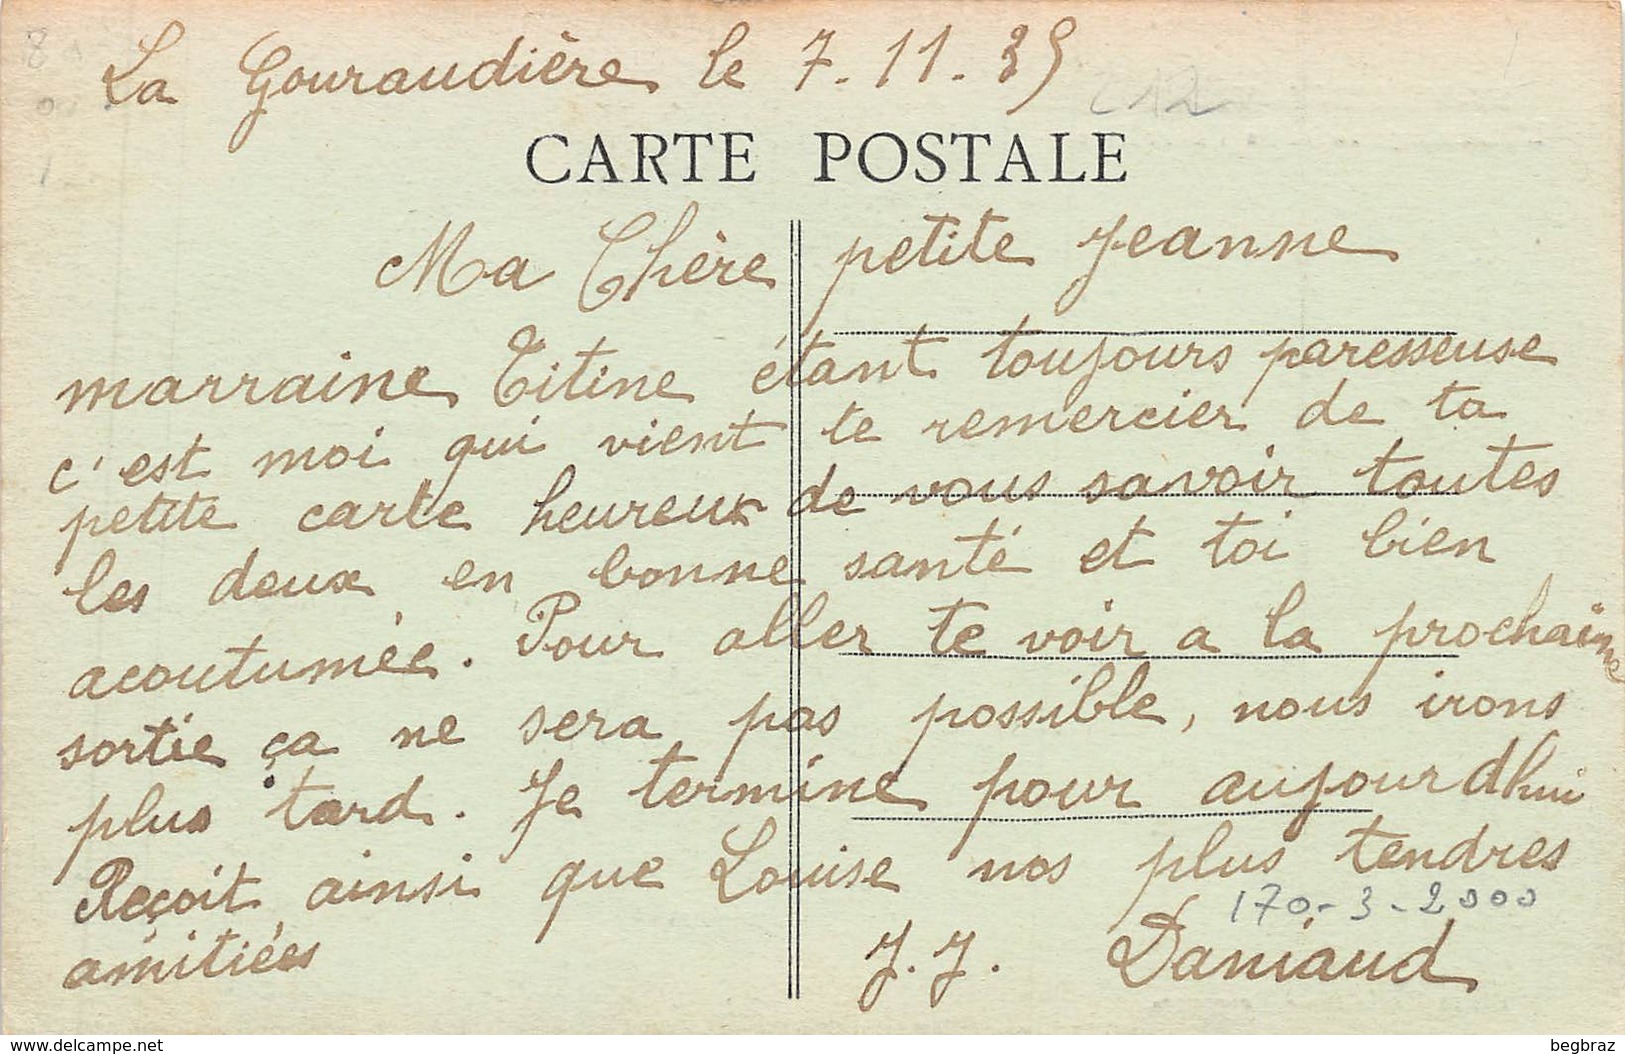 La Gouraudière le 7.11.35
C12
CARTE POSTALE
Ma Chère petite Jeanne
marraine Titine étant toujours paresseuse
c'est moi qui vient te remercier de ta
petite carte heureux de vous savoir toutes
les deux en bonne santé et toi bien
acoutumée. Pour aller te voir a la prochaine
sortie ça ne sera pas possible, nous irons
plus tard. Je termine pour aujourdhui
Reçoit ainsi que Louise nos plus tendres
170-3-2000
amitiées J.J. Daniaud
www.delcampe.net begbraz